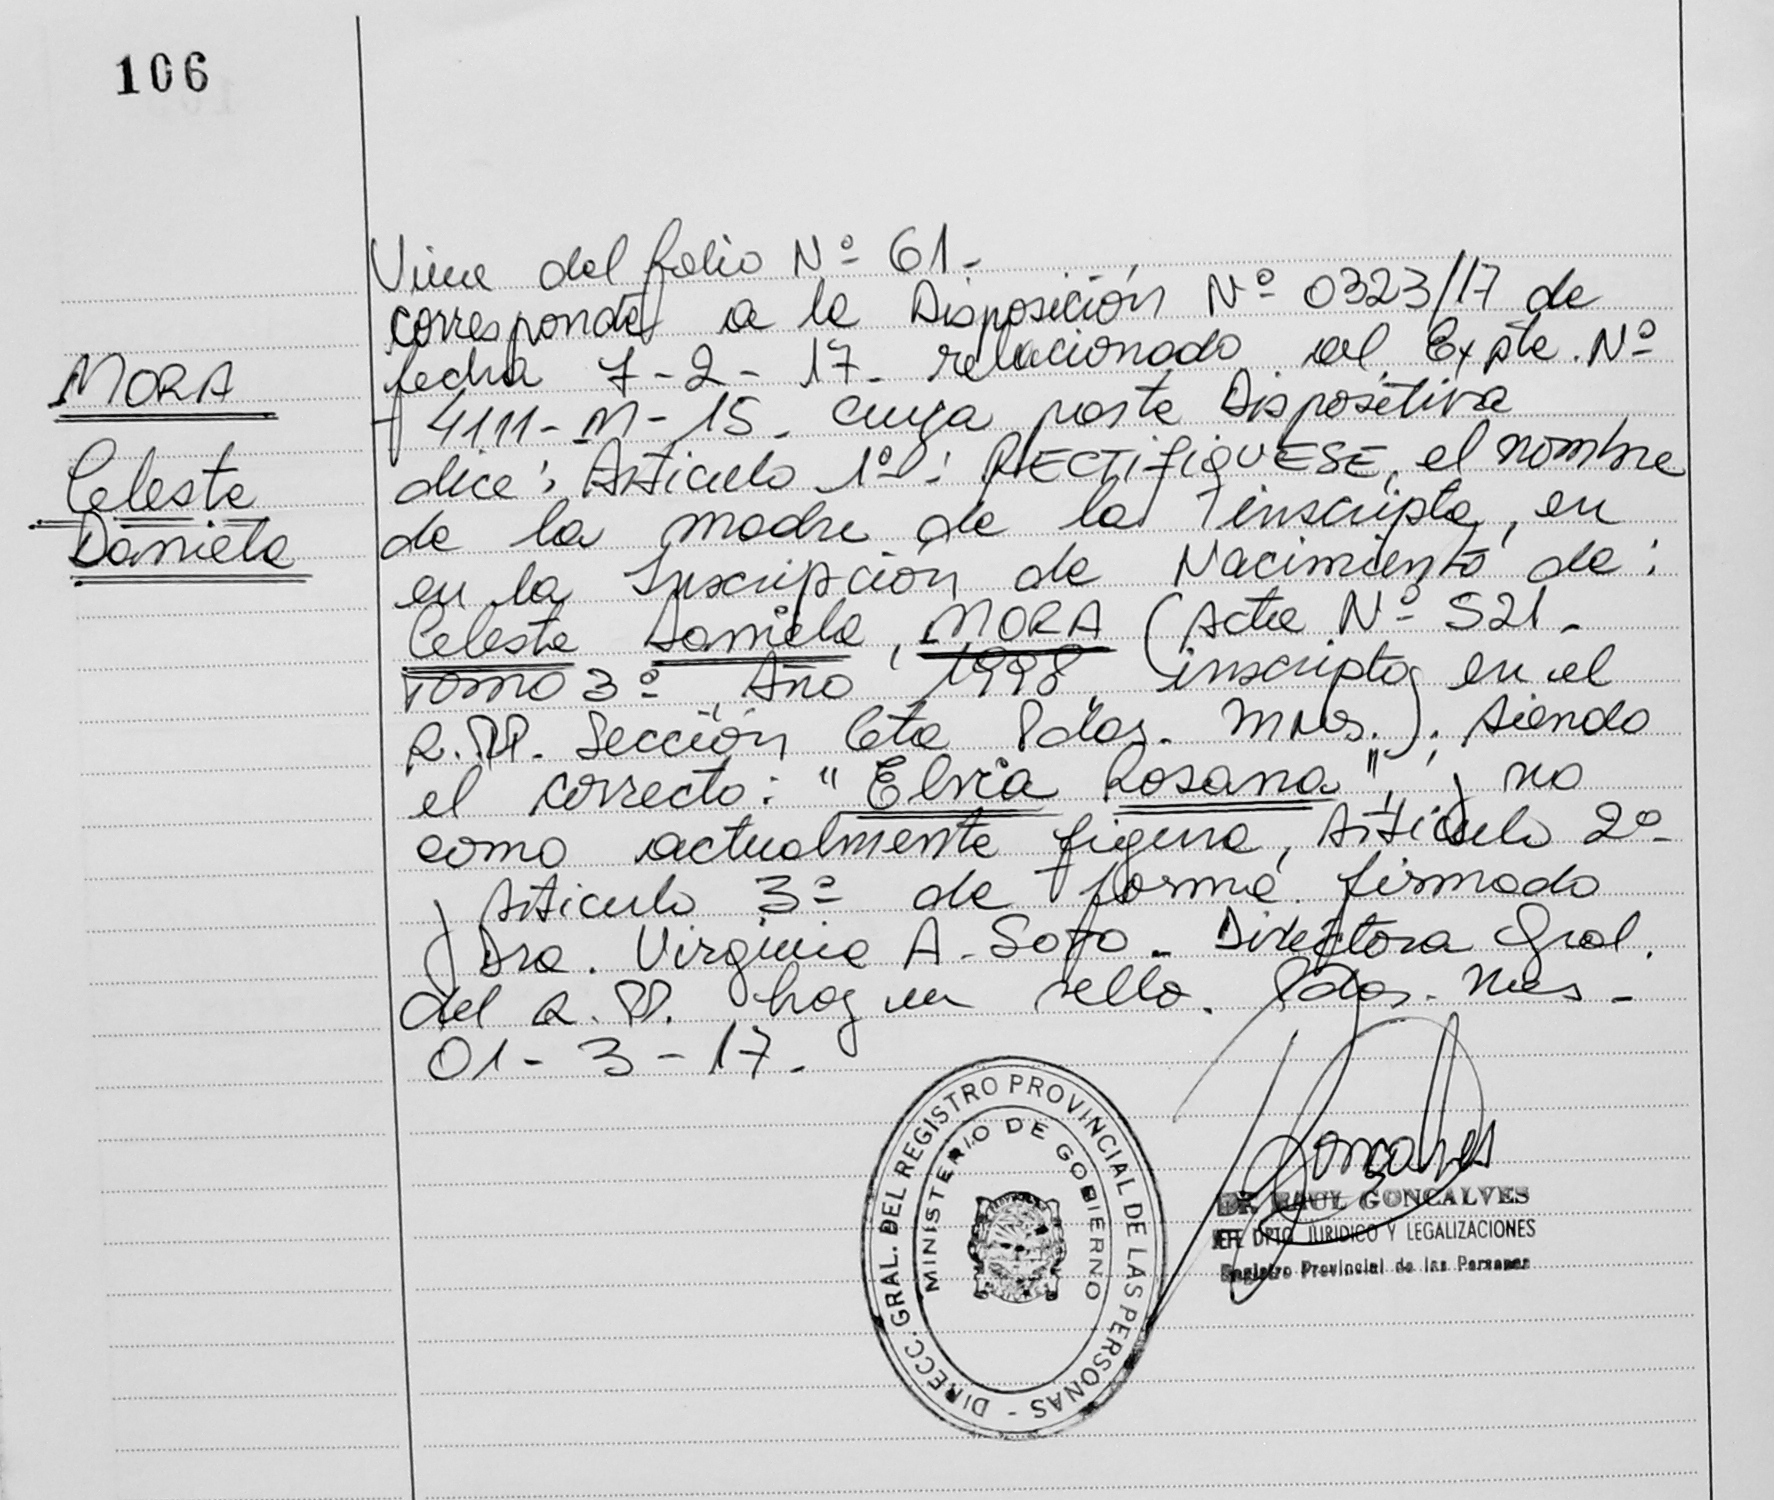 106
MORA
Celeste
Daniela
Viene del folio Nº 61.-
corresponde a la Disposición Nº 0323/17 de
fecha 7-2-17- relacionado al Expte. Nº
4111-M-15- cuya parte Dispositiva
dice: Articulo 1º: RECTIFIQUESE, el nombre
de la madre de la inscripta, en
en la Inscripción de Nacimiento de:
Celeste Daniela, MORA (Acta Nº 521-
Tomo 3º Año 1998 inscripta en el
R.PP. Sección 6ta Pdas. Mnes.). siendo
el correcto: "Elvia Rosana", y no
como actualmente figura, Articulo 2º-
y Articulo 3º de forma. firmado
Dra. Virginia A. Soto - Directora Gral.
del R.PP. hay un sello. Pdas. Mnes -
01-3-17-
DIRECC. GRAL. DEL REGISTRO PROVINCIAL DE LAS PERSONAS -
MINISTERIO DE GOBIERNO
DR. RAUL GONCALVES
JEFE DPTO. JURIDICO Y LEGALIZACIONES
Registro Provincial de las Personas